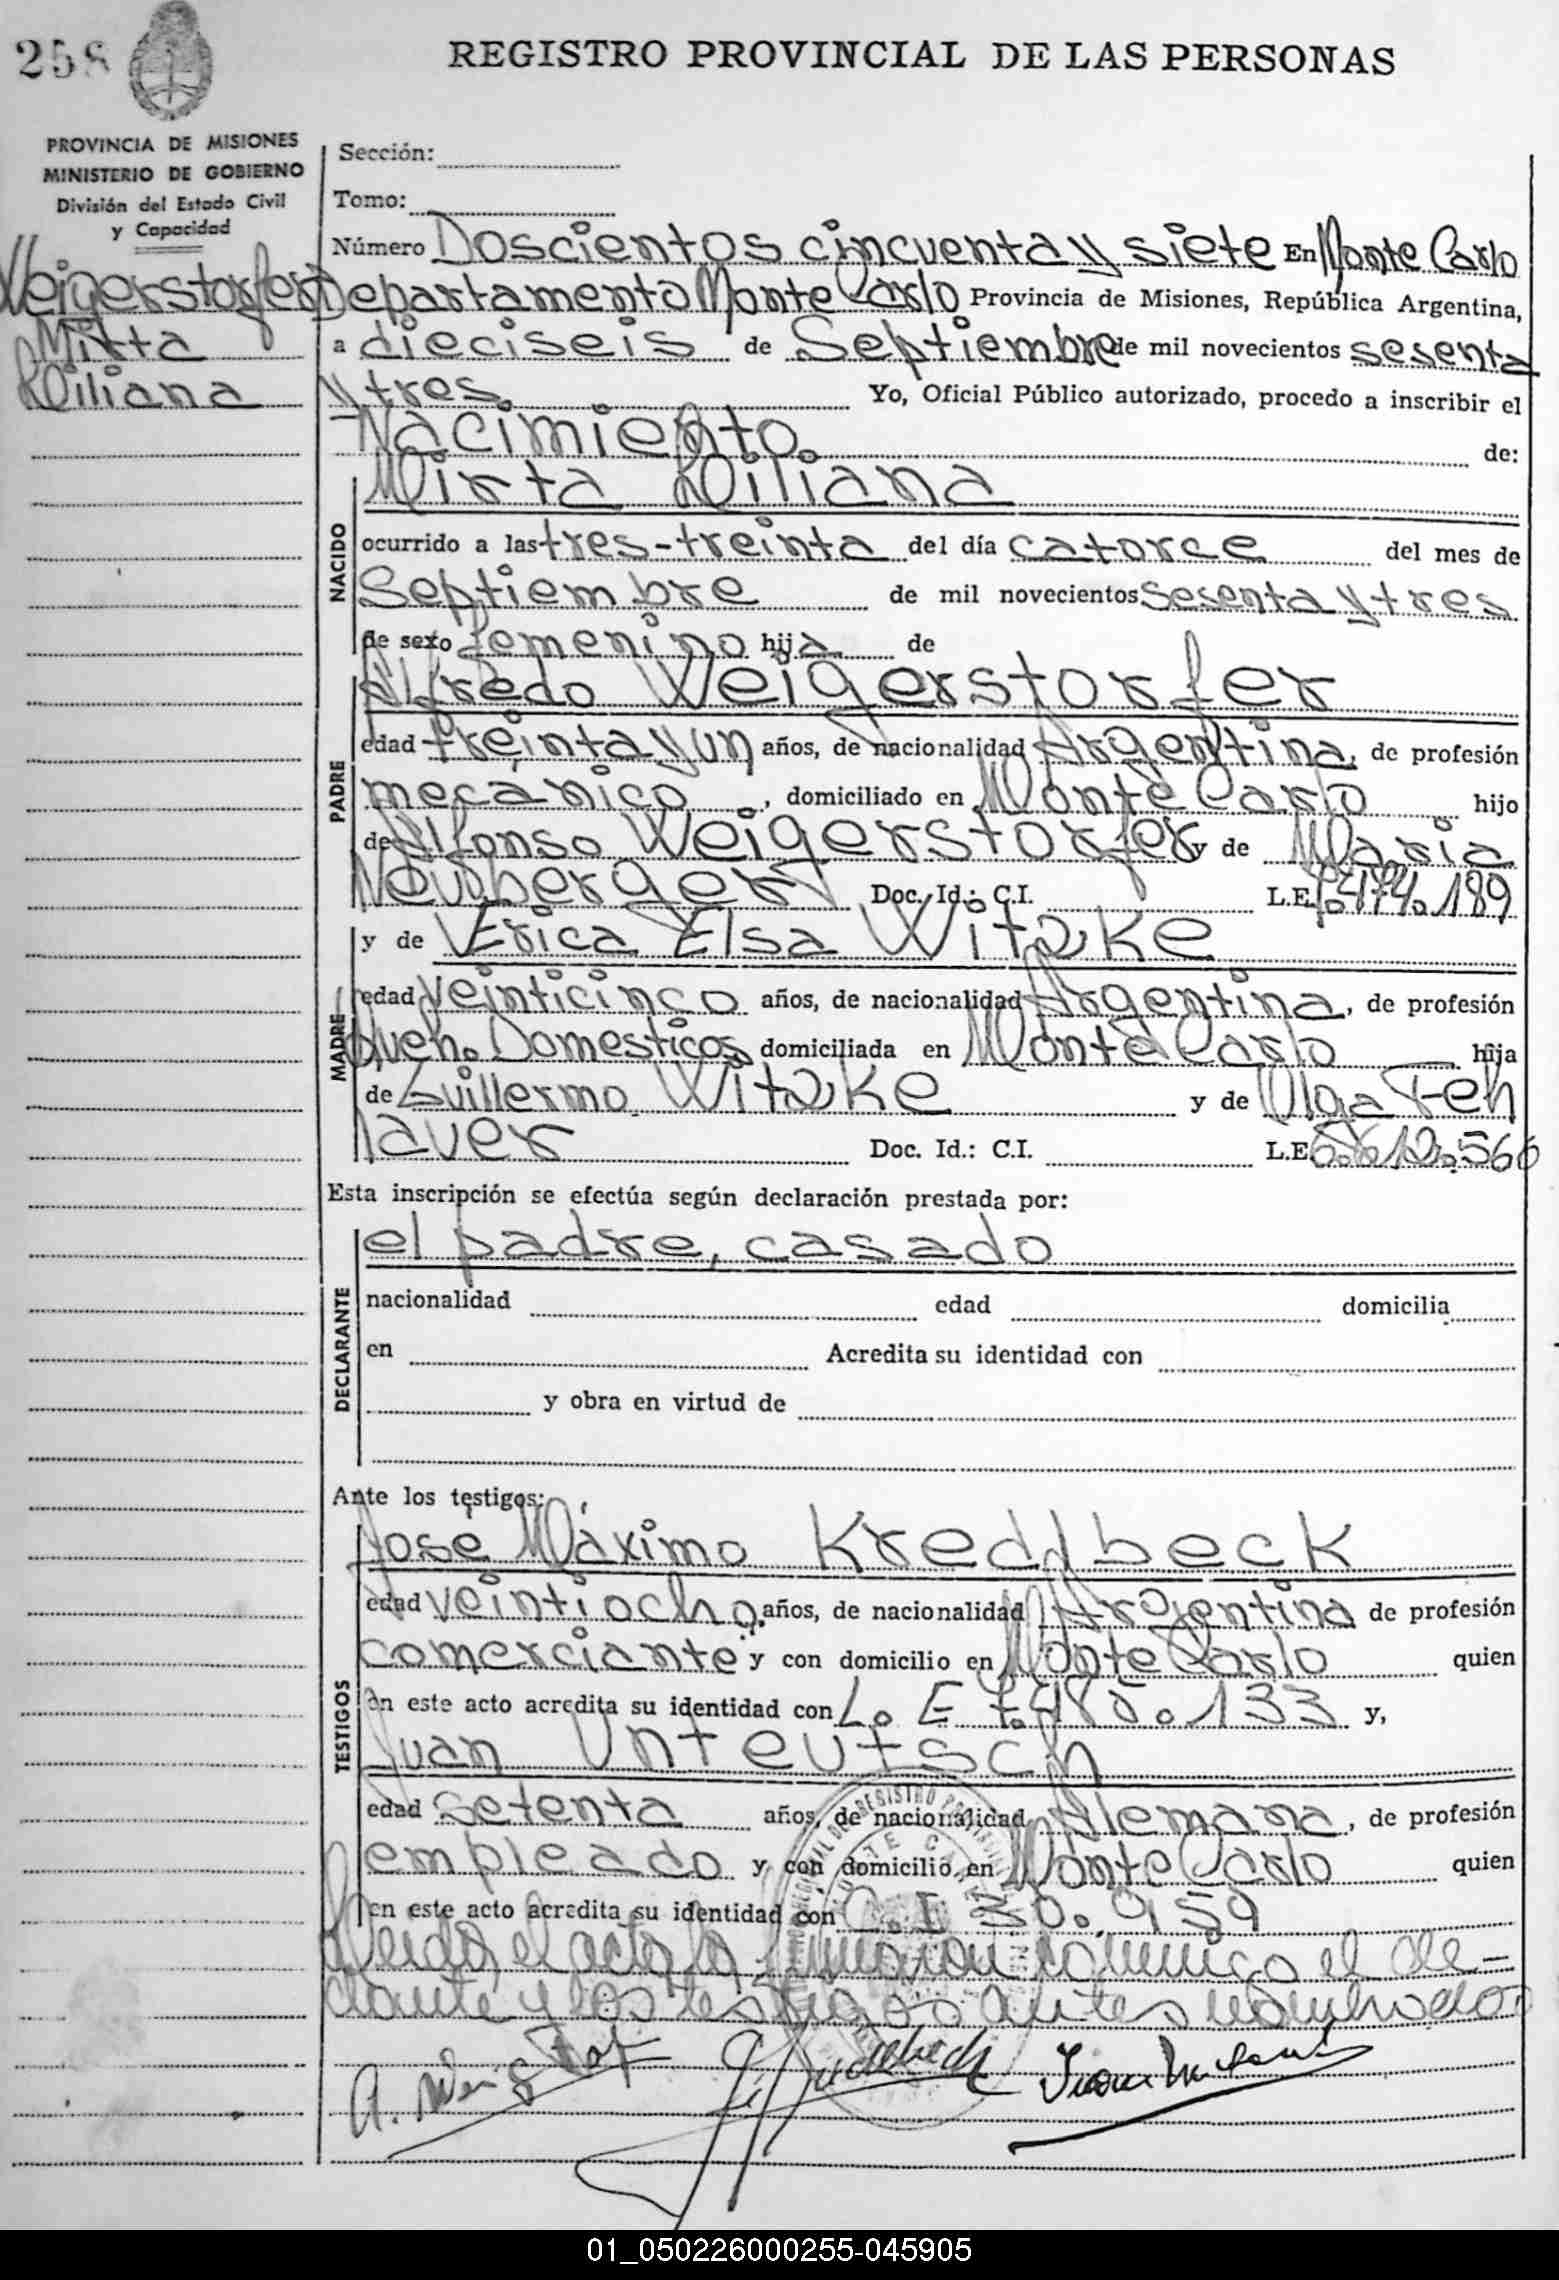 258
REGISTRO PROVINCIAL DE LAS PERSONAS
PROVINCIA DE MISIONES
MINISTERIO DE GOBIERNO
División del Estado Civil
y Capacidad
Weigerstorfer
Mirta
Liliana
Sección:
Tomo:
Número Doscientos cincuenta y siete En Monte Carlo
Departamento Monte Carlo Provincia de Misiones, República Argentina,
a dieciseis de Septiembre de mil novecientos sesenta
y tres. Yo, Oficial Público autorizado, procedo a inscribir el
Nacimiento. de:
Mirta Liliana
NACIDO
ocurrido a las tres-treinta del día catorce del mes de
Septiembre de mil novecientos sesenta y tres
de sexo femenino hija de
Alfredo Weigerstorfer
PADRE
edad treinta y un años, de nacionalidad Argentina, de profesión
mecánico, domiciliado en Monte Carlo hijo
de Alfonso Weigerstorfer y de Maria
Neusberger Doc. Id.: C.I. L.E. 7.474.189
y de Erica Elsa Witzke
MADRE
edad veinticinco años, de nacionalidad Argentina, de profesión
Queh. Domesticos domiciliada en Monte Carlo hija
de Guillermo Witzke y de Olga Feh
lauer Doc. Id.: C.I. L.E. 6.612.566
Esta inscripción se efectúa según declaración prestada por:
el padre, casado
DECLARANTE
nacionalidad edad domicilia
en Acredita su identidad con
y obra en virtud de
Ante los testigos:
José Máximo Kreddbeck
TESTIGOS
edad veintiocho, años, de nacionalidad Argentina de profesión
comerciante y con domicilio en Monte Carlo quien
en este acto acredita su identidad con L. E 7.485.133 y,
Juan Unteutsch
edad setenta años, de nacionalidad Alemana, de profesión
empleado y con domicilio en Monte Carlo quien
en este acto acredita su identidad con C. I 30.959
Leida el acta la firmaron conmigo el de-
clarante y los testigos antes nombrados
01_050226000255-045905